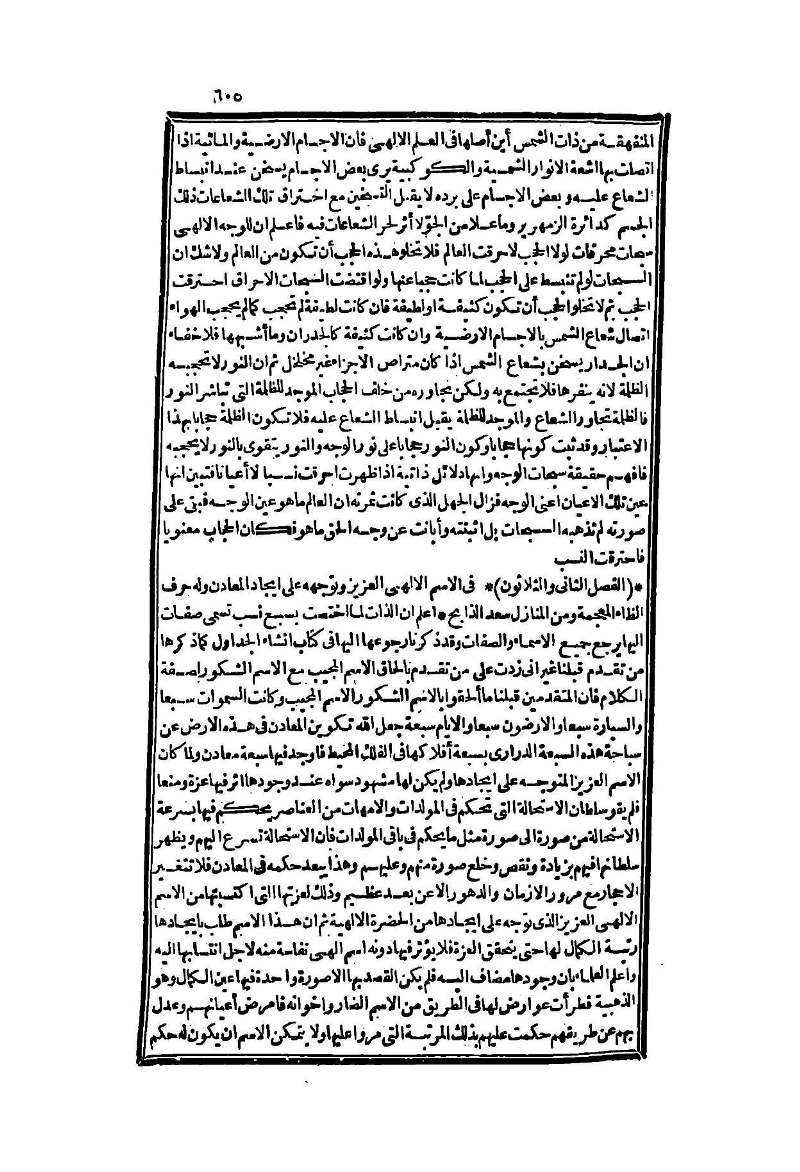 ٦٠٥
المنفهقة من ذات الشمس أين أصلها فى العلم الالهى فان الاجسام الارضية والمائية اذا
اتصلت بها أشعة الانوار الشمسية والكوكبية يرى بعض الاجسام يسخن عند انبساط
الشعاع عليه وبعض الاجسام على برده لا يقبل التسخين مع اختراق تلك الشعاعات ذلك
الجسم كدائرة الزمهرير وماعلا من الجوّ لا أثر لحر الشعاعات فيه فاعلم ان للوجه الالهى
سبحات محرقات لولا الحجب لاحرقت العالم فلا تخلو هذه الحجب أن تكون من العالم ولاشك ان
السبحات لو لم تنبسط على الحجب لما كانت حجباعنها ولو اقتضت السبحات الاحراق احترقت
الحجب ثم لا تخلو الحجب أن تكون كثيفة اولطيفة فان كانت لطيفة لم تحجب كمالم يحجب الهواء
اتصال شعاع الشمس بالاجسام الارضية وان كانت كثيفة كالجدران وماأشبهها فلاخفاء
ان الجدار يسخن بشعاع الشمس اذا كان متراص الاجزاء غير مخلخل ثم ان النور لا تحجبه
الظلمة لانه ينفرها فلا تجتمع به ولكن تجاوره من خلف الحجاب الموجد للظلمة التى تباشر النور
فالظلمة تجاور الشعاع والموجد للظلمة يقبل انبساط الشعاع عليه فلا تكون الظلمة حجابابهذا
الاعتبار وقد ثبت كونها حجابا وكون النور حجابا على نور الوجه والنور يتقوى بالنور لا يحجبه
فافهم حقيقة سبحات الوجه وانها دلائل ذاتية اذا ظهرت احرقت نسبا لا أعيانا فتبين انها
عين تلك الاعيان اعنى الوجه فزال الجهل الذى كانت ثمرته ان العالم ماهو عين الوجه فبقى على
صورته لم تذهبه السبحات بل اثبتته وأبانت عن وجه الحق ماهو فكان الحجاب معنويا
فاحترقت النسب
*(الفصل الثانى والثلاثون)* فى الاسم الالهى العزيز وتوجهه على ايجاد المعادن وله حرف
الظاء المعجمة ومن المنازل سعد الذابح * اعلم ان الذات لما اختصت بسبع نسب تسمى صفات
اليها يرجع جميع الاسماء والصفات وقد ذكرنا رجوعها اليها فى كتاب انشاء الجداول كما ذكرها
من تقدم قبلنا غير انى زدت على من تقدم بالحاق الاسم المجيب مع الاسم الشكور لصفة
الكلام فان المتقدمين قبلنا ما ألحقوا بالاسم الشكور الاسم المجيب وكانت السموات سبعا
والسيارة سبعا والارضون سبعا والايام سبعة جعل الله تكوين المعادن فى هذه الارض عن
سباحة هذه السبعة الدرارى بسبعة أفلاكها فى الفلك المحيط فاوجد فيها سبعة معادن ولما كان
الاسم العزيز المتوجه على ايجادها ولم يكن لها مشهود سواه عند وجودها اثر فيها عزة ومنعا
فلم يقو سلطان الاستحالة التى تحكم فى المولدات والامهات من العناصر يحكم فيها بسرعة
الاستحالة من صورة الى صورة مثل ما يحكم فى باقى المولدات فان الاستحالة تسرع اليهم ويظهر
سلطانها فيهم بزيادة ونقص وخلع صورة منهم وعليهم وهذا يبعد حكمه فى المعادن فلا تتغير
الاحجار مع مرور الازمان والدهور الا عن بعد عظيم وذلك لعزتها التى اكتسبتها من الاسم
الالهى العزيز الذى توجه على ايجادها من الحضرة الالهية ثم ان هذا الاسم طلب بايجادها
رتبة الكمال لها حتى يتحقق العزة فلا يؤثر فيها دونه اسم الهى نفاسة منه لاجل انتسابها اليه
وأعلم العلماء بان وجودها مضاف اليه فلم يكن القصد بها الا صورة واحدة فيها عين الكمال وهو
الذهبية فطرأت عوارض لها فى الطريق من الاسم الضار واخوانه فامرض أعيانهم وعدل
بهم عن طريقهم حكمت عليهم بذلك المرتبة التى مروا عليها ولا يتمكن الاسم ان يكون له حكم